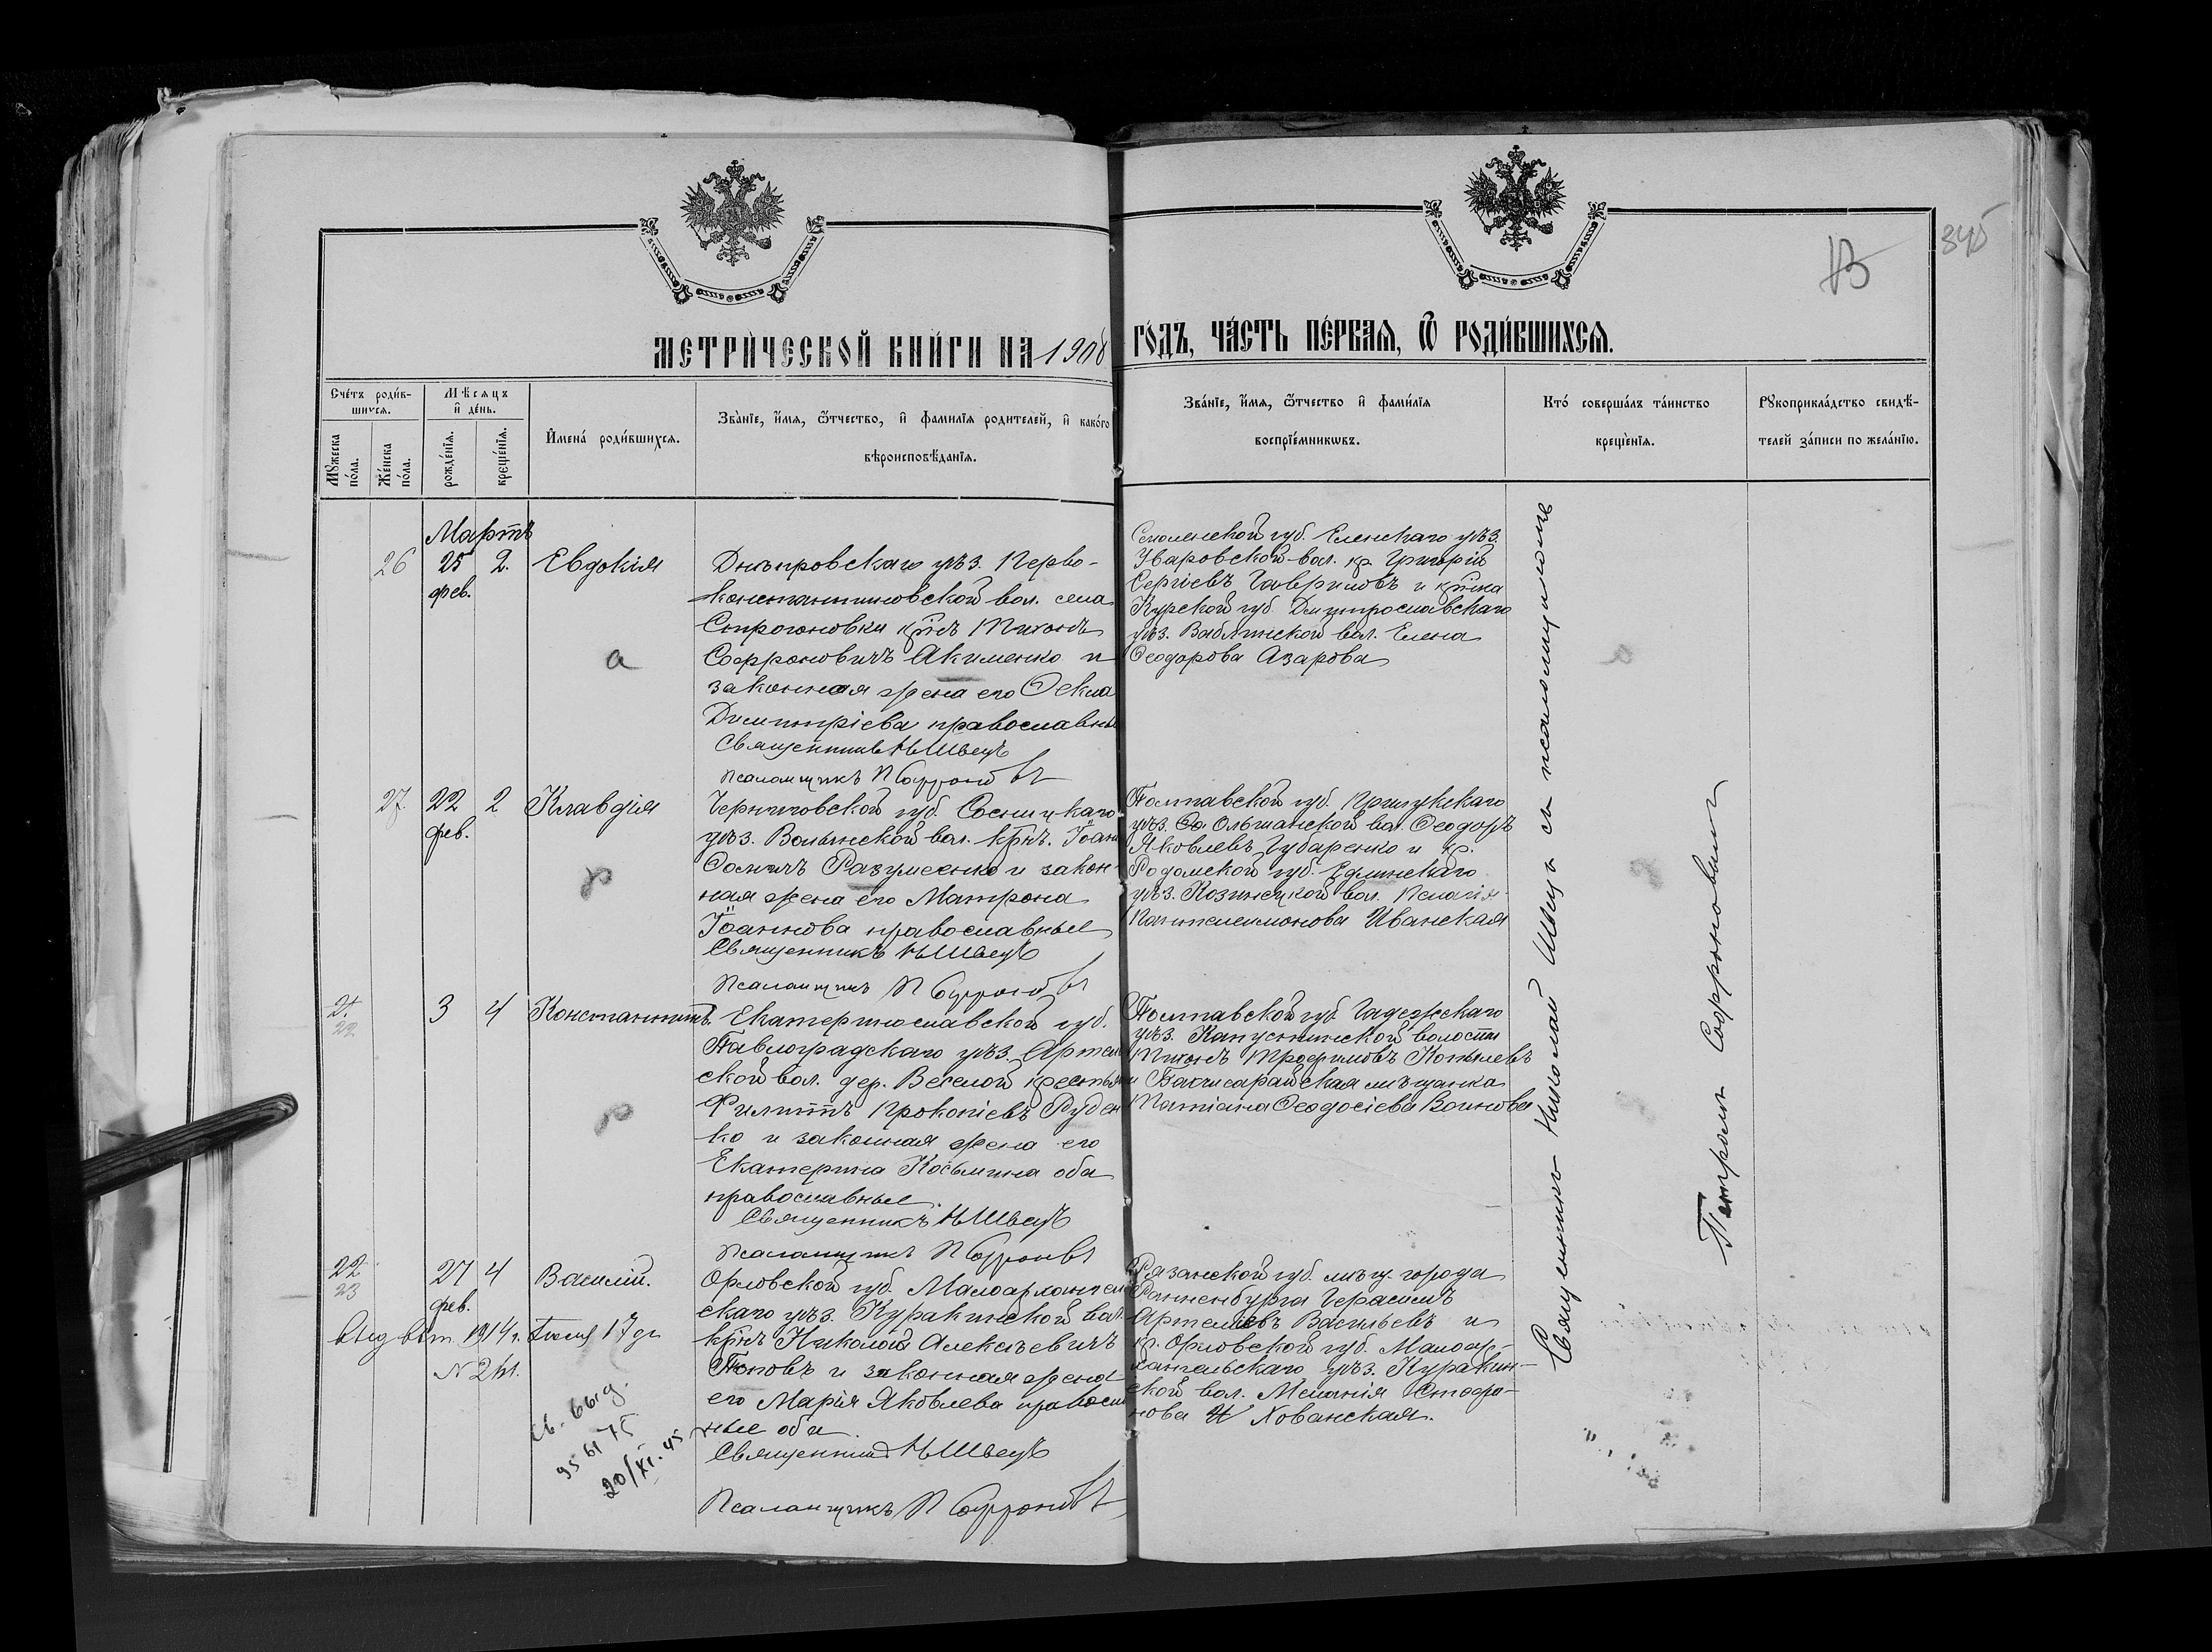 МЕТРИ́ЧЕСКОЙ КНИ́ГИ НА 1908
ГО́ДЪ, ЧА́СТЬ ПЕ́РВАЯ, Ѿ РОДИ́ВШИХСЯ.
345
Сче́тъ роди́в-
шихся.
Мѣ́сяцъ
и҆ де́нь.
Мꙋ́жеска по́ла.
Же́нска по́ла.
рожде́нїѧ.
креще́нїѧ.
И҆мена̀ роди́вшихся.
Зва́нїе, и҆́мѧ, ѻ҆́тчество, и҆ фами́лїѧ роди́телей, и҆ како́гѡ
вѣроисповѣ́данїѧ.
Зва́нїе, и҆́мѧ, ѻ҆́тчество и҆ фами́лїѧ
воспрїе́мникѡвъ.
Кто̀ соверша́лъ та́инство
креще́нїѧ.
Рꙋкоприкла́дство свидѣ́-
телей за́писи по жела́нїю.
Мартъ
26 25 2. Евдокія
фев.
а
Днѣпровскаго уѣз. Перво-
константиновской вол. села
Строгоновки крнъ Тихонъ
Софроновичъ Акименко и
законная жена его Ѳекла
Димитріева православны
Священникъ Н Швецъ
Псаломщикъ П Софроновъ
Смоленской губ. Еленскаго уѣз.
Уваровской вол. кр. Григорій
Сергіевъ Гавриловъ и крнка
Курской губ. Дмитрославскаго
уѣз. Вабли́нской вол. Елена
Ѳеодорова Азарова
27. 22 2 Клавдія
фев.
р
Черниговской губ. Сосницкаго
уѣз. Волынской вол. крнъ. Іоанн
Ѳомичъ Разуменко и закон-
ная жена его Матрона
Іоаннова православные
Священникъ Н Швецъ
Псаломщикъ П Софроновъ
Полтавской губ. Прилукскаго
уѣз. Ольшанской вол. Ѳеодоръ
Яковлевъ Губаренко и кр.
Родомской губ.
уѣз. Козинецкой вол. Пелагія
Пантелеимонова Иванская
21. 3 4 Константинъ.
22
р
Екатеринославской губ.
Павлоградскаго уѣз. Артем
ской вол. дер. Веселой крестьян
Филиппъ Прокопіевъ Руден
ко и законная жена его
Екатерина Косьмина оба
православные.
Священникъ Н Швецъ
Псаломщикъ П Софроновъ
Полтавской губ. Гадежскаго
уѣз. Капустинской волости
Тихонъ Трофимовъ Копылевъ
и Бахчисарайская мѣщанка
Татіана Ѳеодосіева Воинова
22 27 4 Василій.
23 фев.
Орловской губ. Малоархангел
скаго уѣз. Куракинской вол.
крнъ Николай Алексѣевичъ
Поповъ и законная жена
его Марія Яковлева правосла
ные оба
Священникъ Н Швецъ
Псаломщикъ П Софроновъ
Рязанской губ. мѣщ. города
Раненбурга Герасимъ
Артемиевъ Васильевъ и
кр. Орловской губ. Малоар-
хангельскаго уѣз. Куракин-
ской вол. Меланія Стефа-
нова Хованская.
Выд вып. 1914 г. 17 дн
N 241.
Св. выд.
95 61 75
20/XI.45
Священникъ Николай Швецъ съ псаломщикомъ
Петромъ Софроновымъ